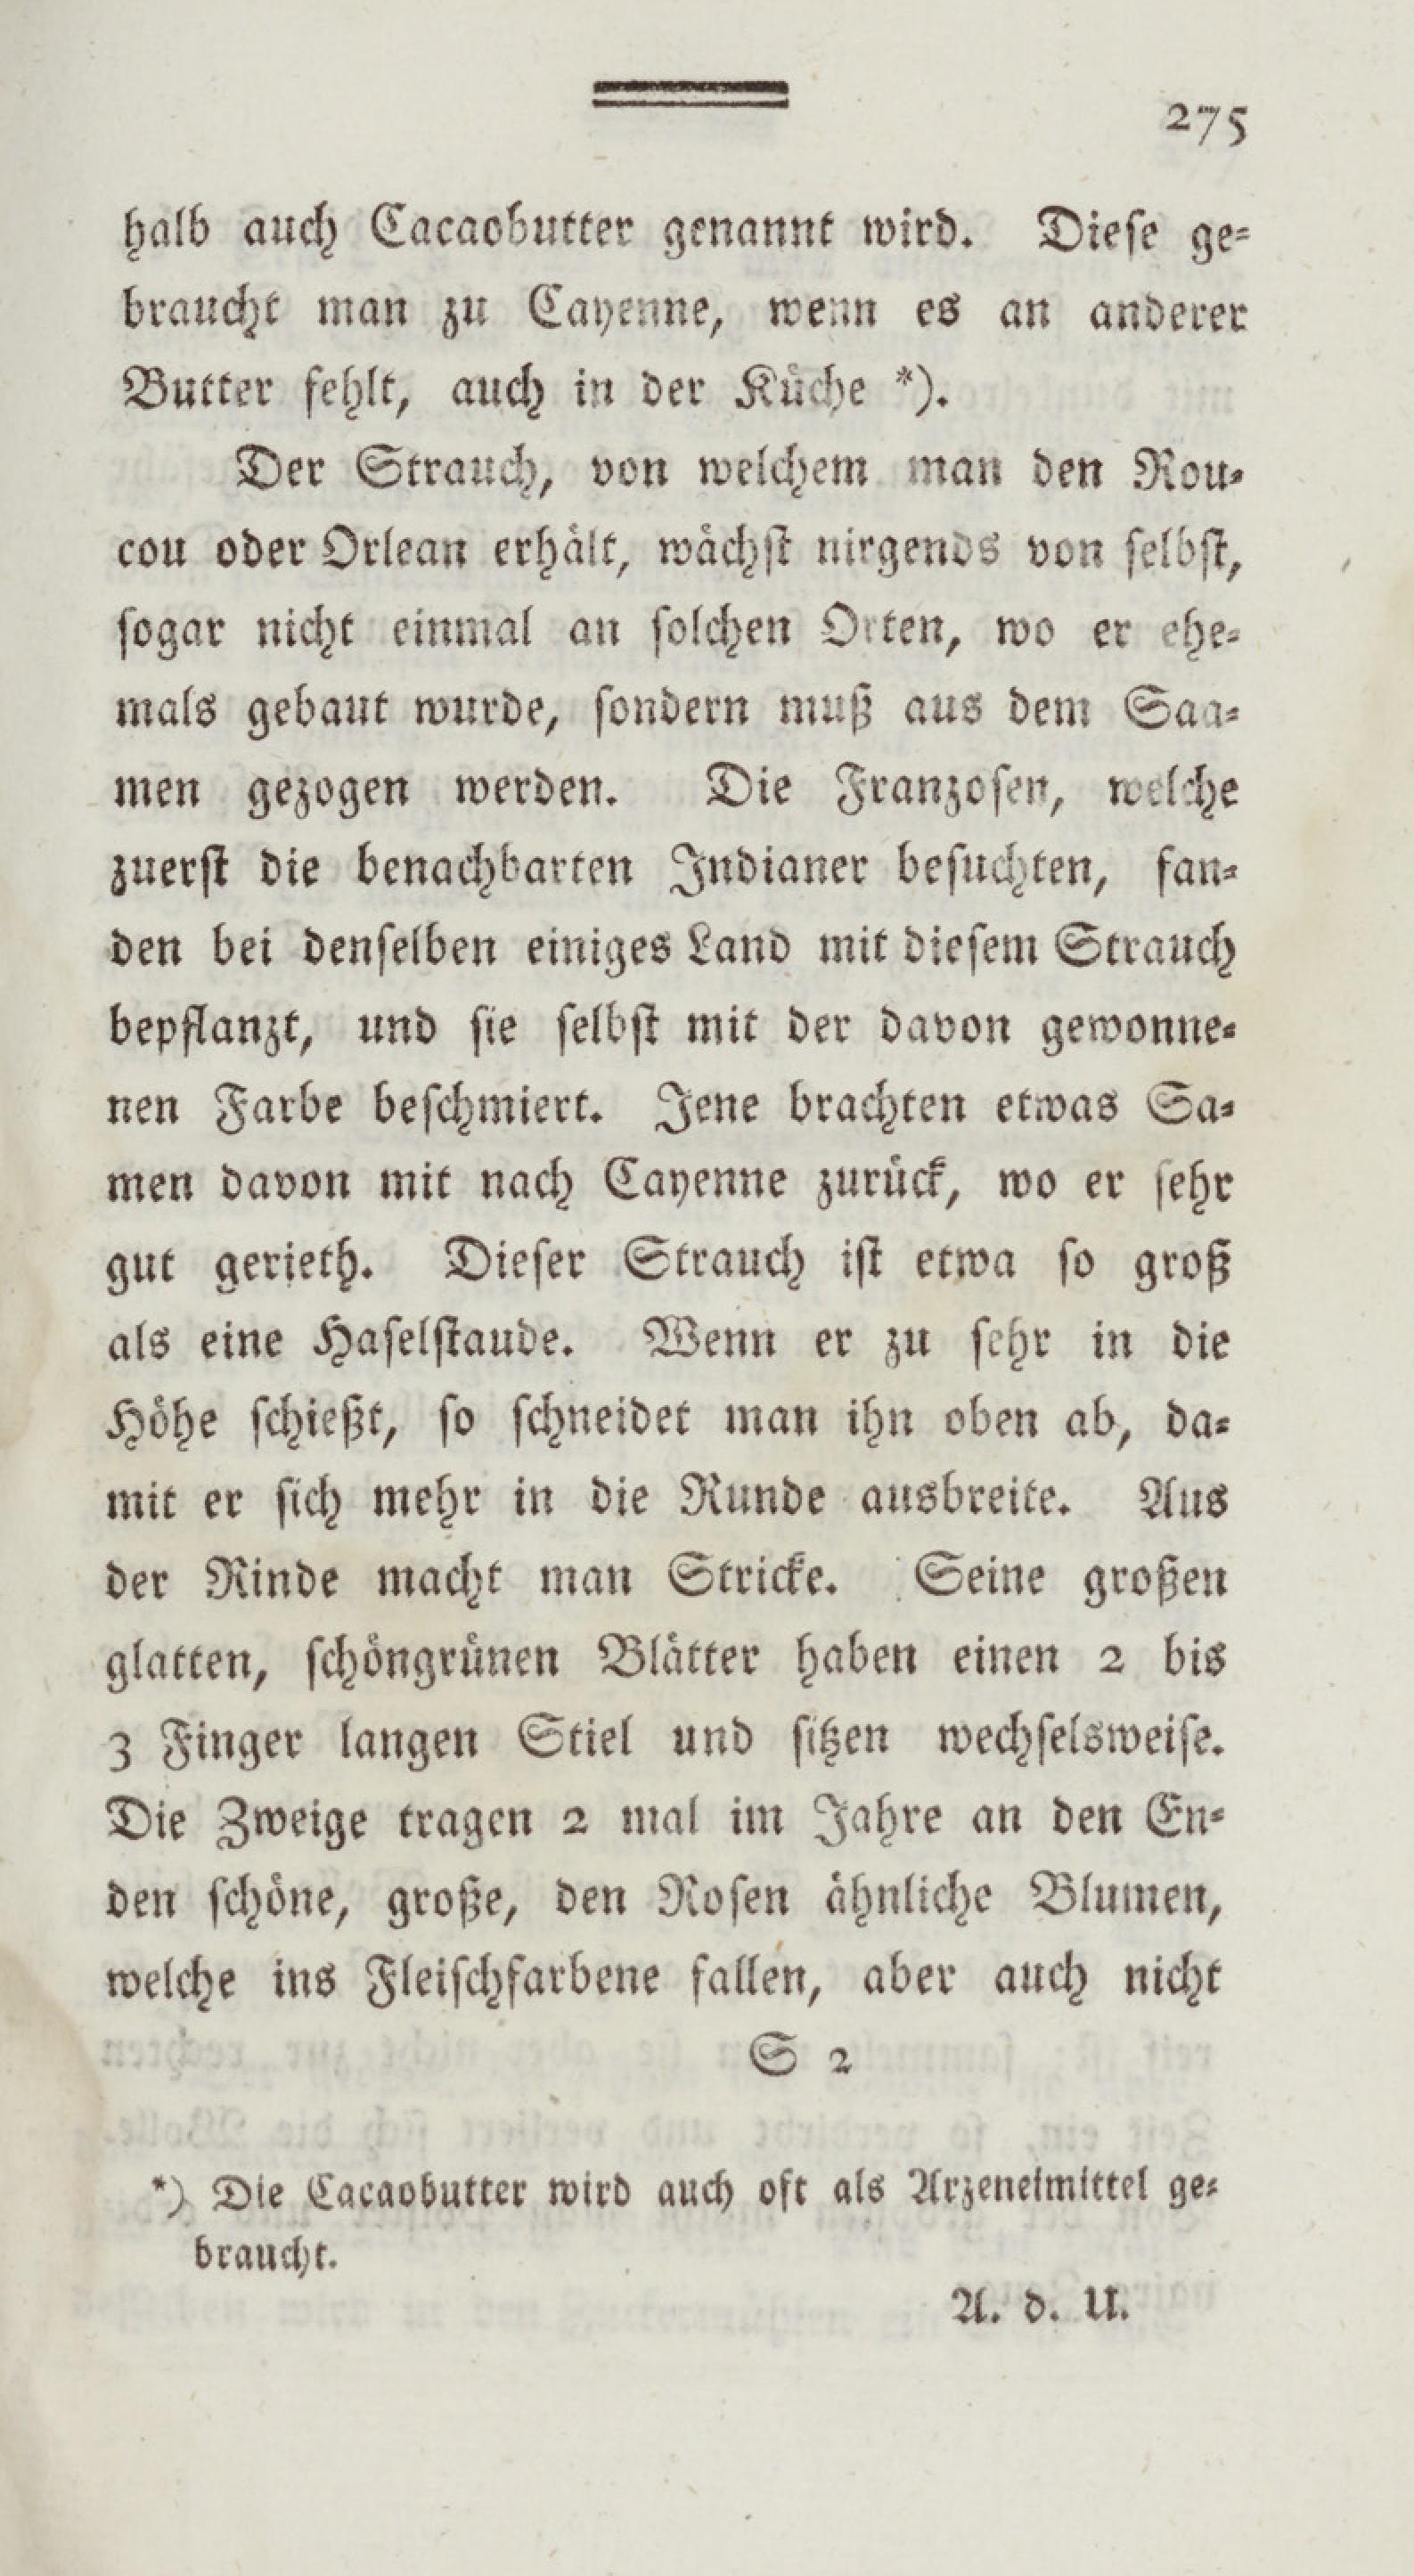 275
halb auch Cacaobutter genannt wird. Diese ge-
braucht man zu Cayenne, wenn es an anderer
Butter fehlt, auch in der Küche *).
Der Strauch, von welchem man den Rou-
cou oder Orlean erhält, wächst nirgends von selbst,
sogar nicht einmal an solchen Orten, wo er ehe-
mals gebaut wurde, sondern muß aus dem Saa-
men gezogen werden. Die Franzosen, welche
zuerst die benachbarten Indianer besuchten, fan-
den bei denselben einiges Land mit diesem Strauch
bepflanzt, und sie selbst mit der davon gewonne-
nen Farbe beschmiert. Jene brachten etwas Sa-
men davon mit nach Cayenne zurück, wo er sehr
gut gerieth. Dieser Strauch ist etwa so groß
als eine Haselstaude. Wenn er zu sehr in die
Höhe schießt, so schneidet man ihn oben ab, da-
mit er sich mehr in die Runde ausbreite. Aus
der Rinde macht man Stricke. Seine großen
glatten, schöngrünen Blätter haben einen 2 bis
3 Finger langen Stiel und sitzen wechselsweise.
Die Zweige tragen 2 mal im Jahre an den En-
den schöne, große, den Rosen ähnliche Blumen,
welche ins Fleischfarbene fallen, aber auch nicht
S 2
*) Die Cacaobutter wird auch oft als Arzeneimittel ge-
braucht.
A. d. U.